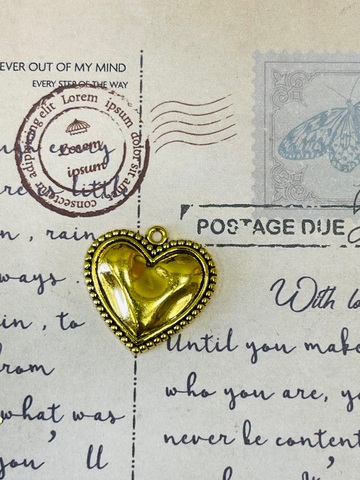 EVER OUT OF MY MIND
EVERY STEP OF THE WAY
Lorem ipsum dolor sit amet consectetur adipiscing elit
Lorem
ipsum
every
little
POSTAGE DUE
n, rain
ways.
With lo
in, to
Until you make
rom
who you are, yo
what was
never be content
you'll